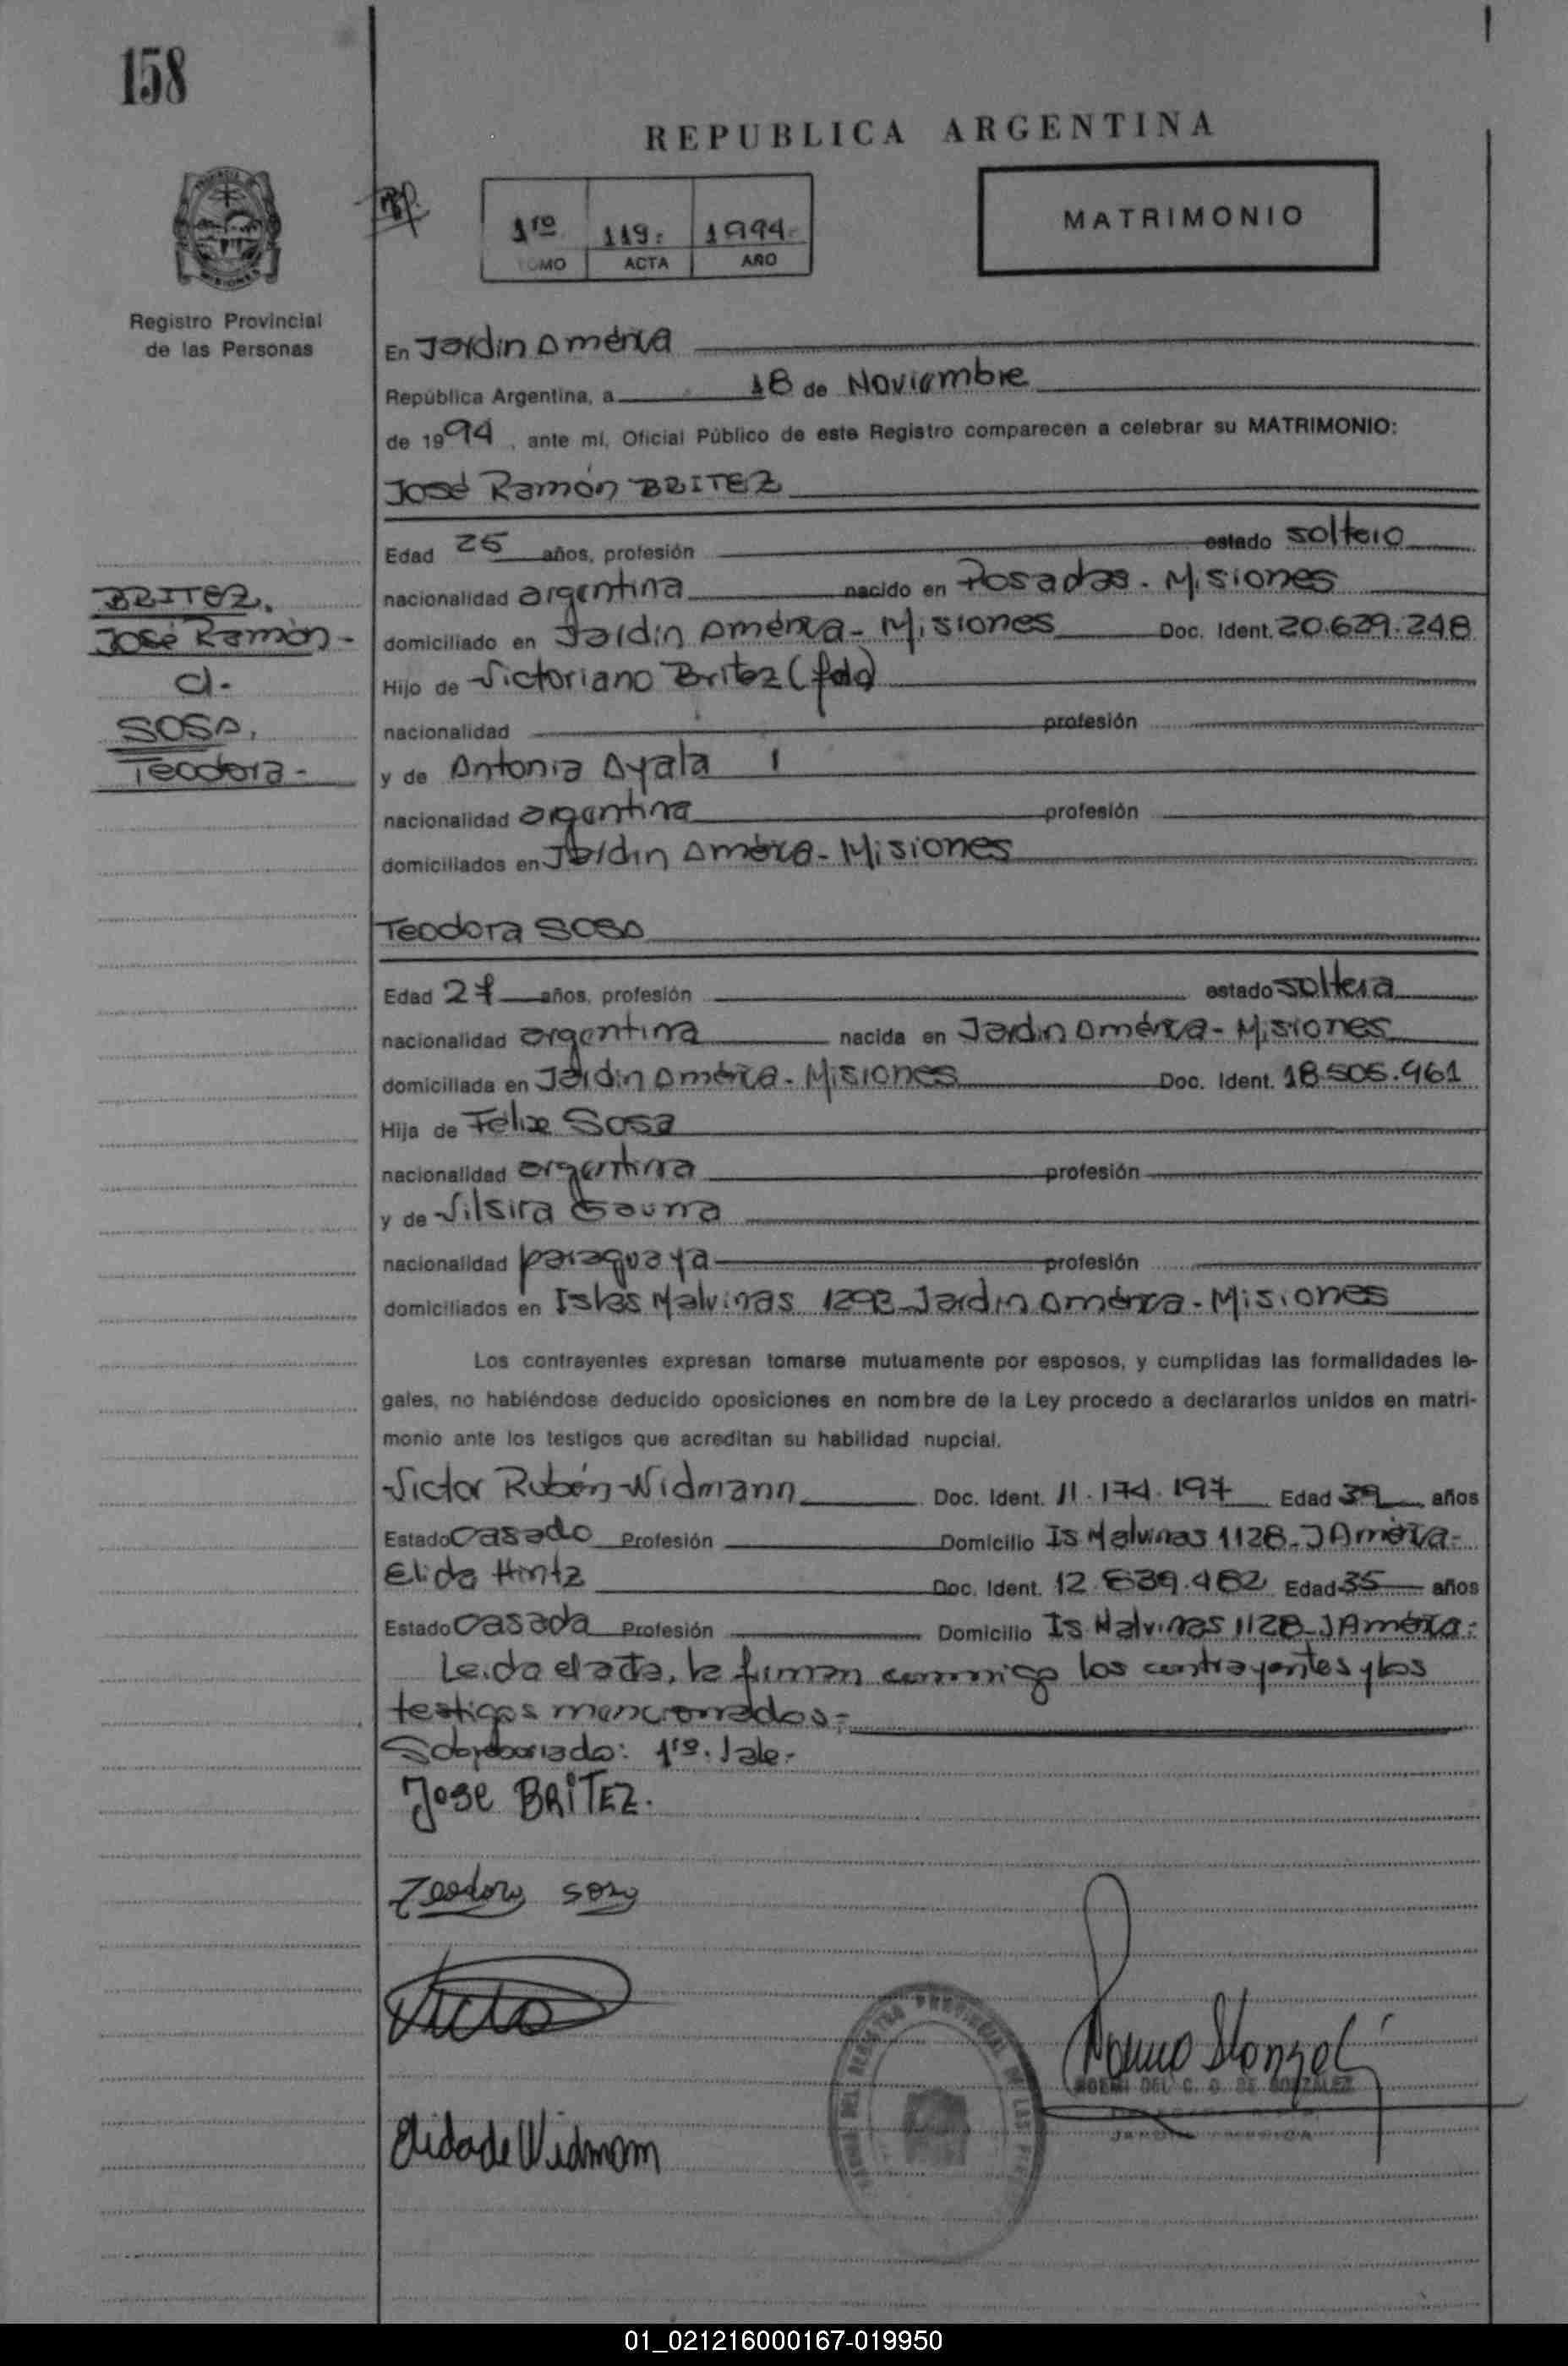 158
REPUBLICA ARGENTINA
MATRIMONIO
1ro 119. 1994.
TOMO ACTA AÑO
Registro Provincial
de las Personas
En Jardin América
República Argentina, a 18 de Noviembre
de 1994, ante mí, Oficial Público de este Registro comparecen a celebrar su MATRIMONIO:
José Ramón BRITEZ
Edad 25 años, profesión estado soltero
nacionalidad argentina nacido en Posadas - Misiones
domiciliado en Jardin América - Misiones Doc. Ident. 20.629.248
Hijo de Victoriano Britez (fdo)
nacionalidad profesión
y de Antonia Ayala
nacionalidad argentina profesión
domiciliados en Jardin América - Misiones
BRITEZ,
José Ramón -
c/.
SOSA,
Teodora -
Teodora SOSA
Edad 27 años, profesión estado soltera
nacionalidad argentina nacida en Jardin América - Misiones
domiciliada en Jardin América - Misiones Doc. Ident. 18.505.961
Hija de Félix Sosa
nacionalidad argentina profesión
y de Vilsira Gauna
nacionalidad paraguaya profesión
domiciliados en Islas Malvinas 1293 Jardin América - Misiones
Los contrayentes expresan tomarse mutuamente por esposos, y cumplidas las formalidades le-
gales, no habiéndose deducido oposiciones en nombre de la Ley procedo a declararlos unidos en matri-
monio ante los testigos que acreditan su habilidad nupcial.
Victor Rubén Widmann Doc. Ident. 11.174.197 Edad 39 años
Estado casado Profesión Domicilio Is Malvinas 1128 - J América -
Elida Hintz Doc. Ident. 12.839.482 Edad 35 años
Estado casada Profesión Domicilio Is Malvinas 1128 - J América -
Leida el acta, la firman conmigo los contrayentes y los
testigos mencionados -
Sobreborrado: 1ro. Vale -
Jose BRITEZ.
Teodora Sosa
Elida de Widmam
NOEMI DEL C. D. DE GONZALEZ
JARDIN AMERICA
01_021216000167-019950